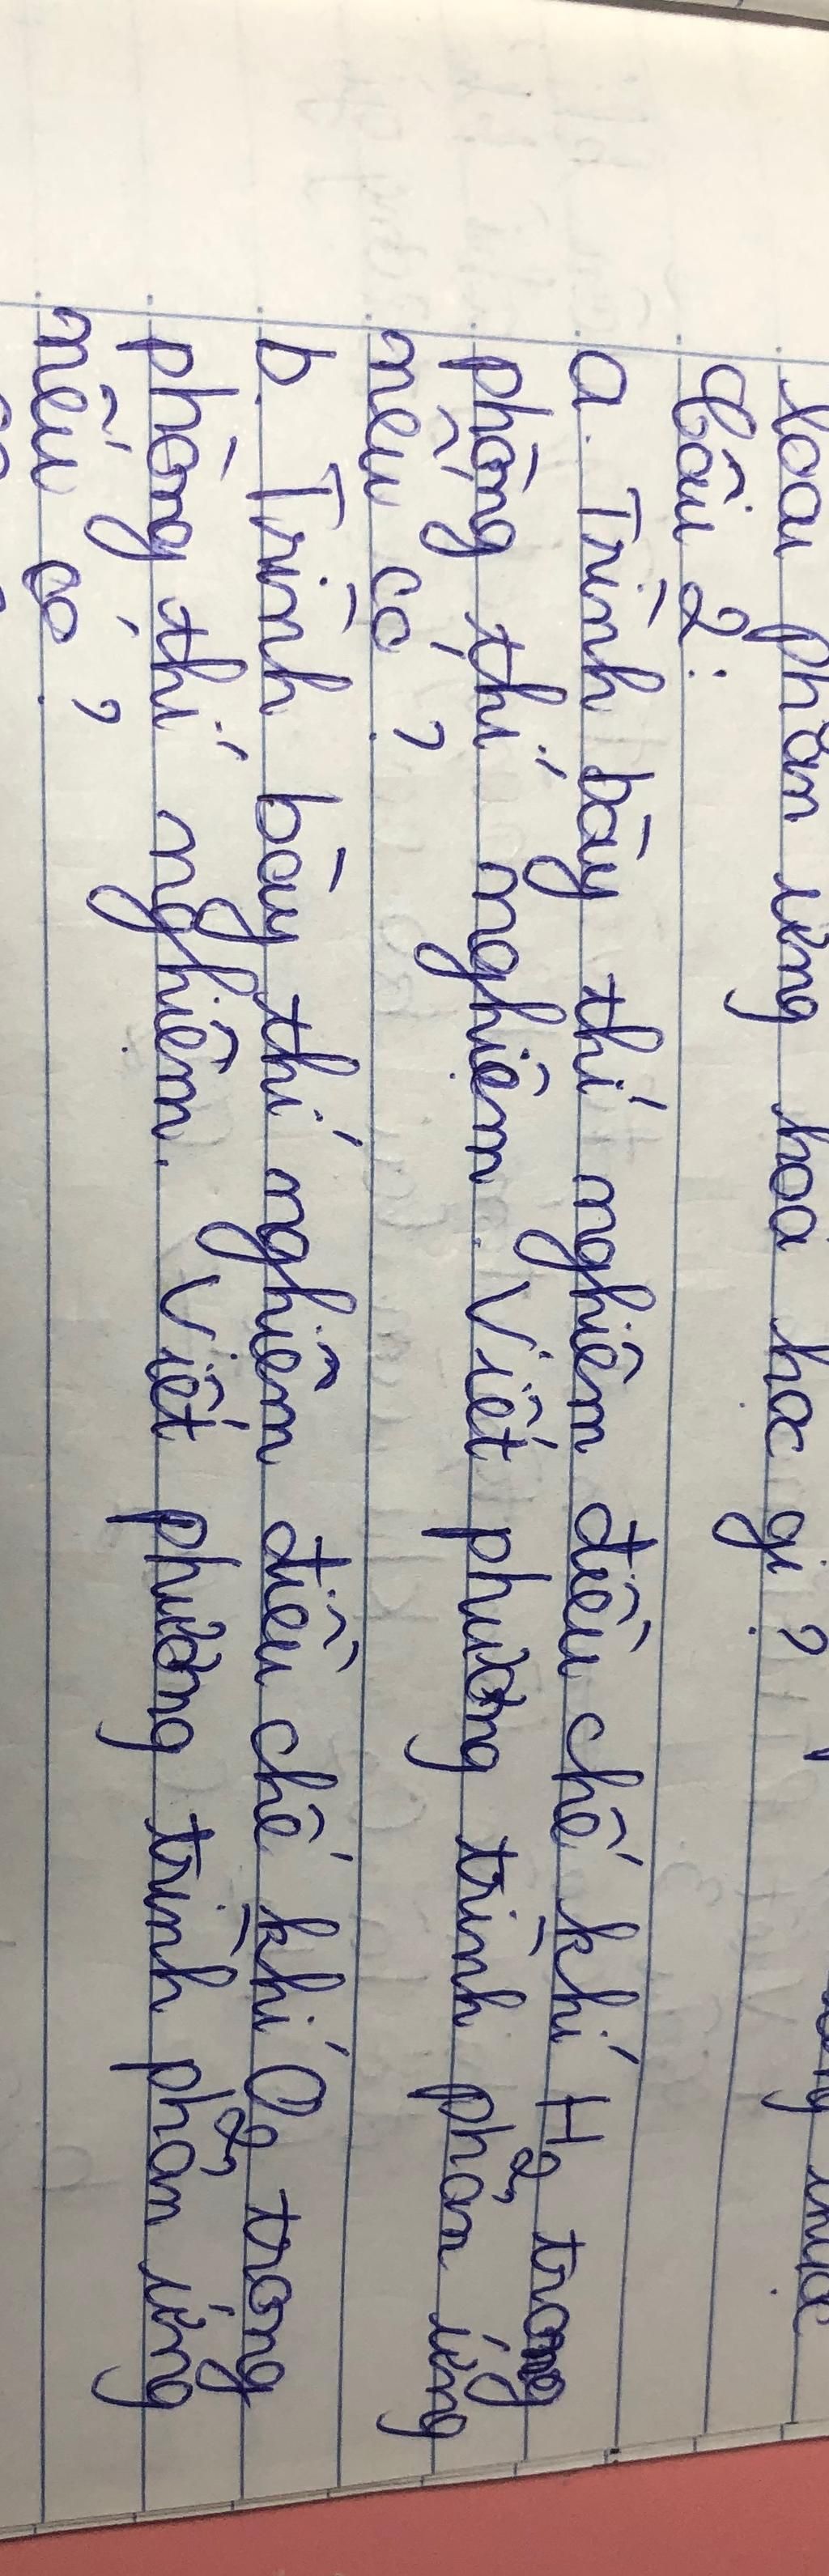 loại phản ứng hoá học gì?
Câu 2:
a. Trình bày thí nghiệm điều chế khí H₂ trong
phòng thí nghiệm. Viết phương trình phản ứng
nếu có?
b. Trình bày thí nghiệm điều chế khí O₂ trong
phòng thí nghiệm. Viết phương trình phản ứng
nếu có?